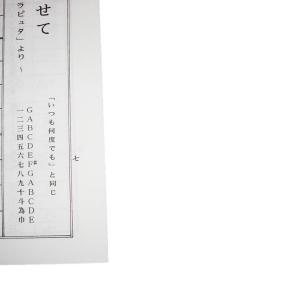 せて
ラピュタ」より ～
「いつも何度でも」と同じ
GABCDEF#GABCDE
一二三四五六七八九十斗為巾
七